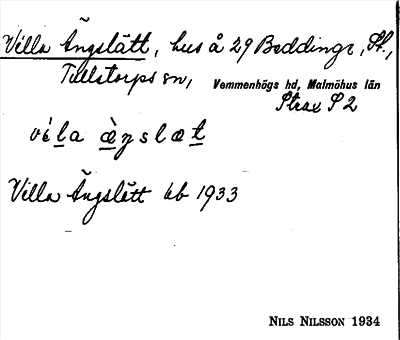 Villa Ängslätt, hus å 29 Beddinge, St.,
Tullstorps sn, Vemmenhögs hd, Malmöhus län
Strax S 2
víla æ̀ŋslæt
Villa Ängslätt eb 1933
NILS NILSSON 1934